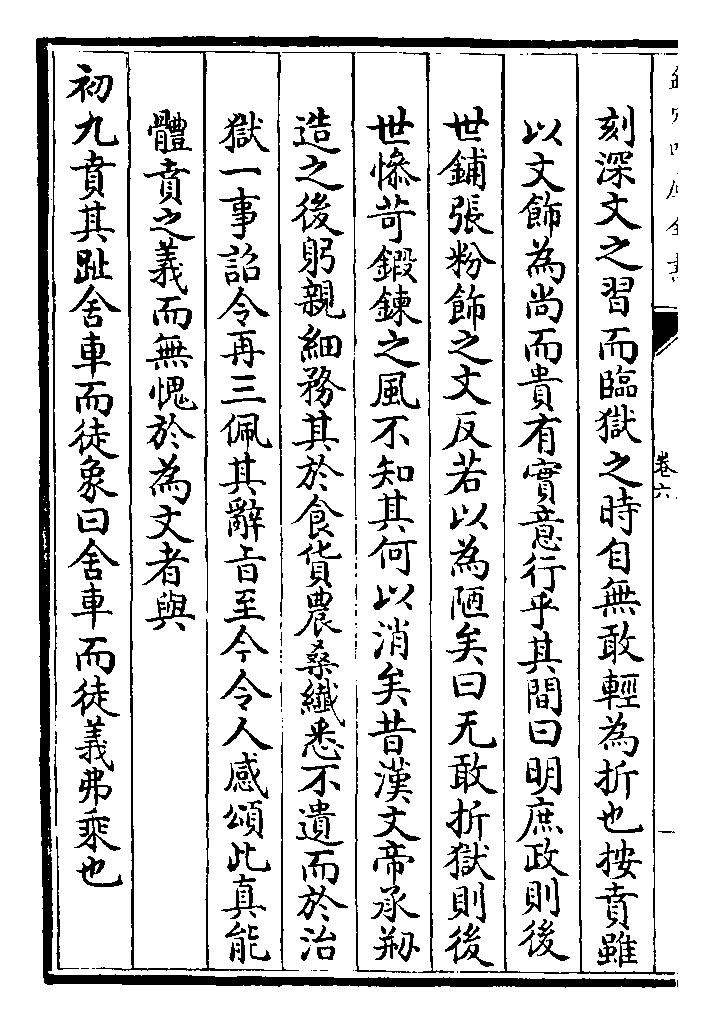 刻深文之習而臨獄之時自無敢輕為折也按賁雖
以文飾為尚而貴有實意行乎其間曰明庶政則後
世鋪張粉飾之文反若以為陋矣曰无敢折獄則後
世慘苛鍛鍊之風不知其何以消矣昔漢文帝承刱
造之後躬親細務其於食貨農桑纖悉不遺而於治
獄一事詔令再三佩其辭㫖至今令人感頌此真能
體賁之義而無愧於為文者與
初九賁其趾舍車而徒象曰舍車而徒義弗乘也
卷六